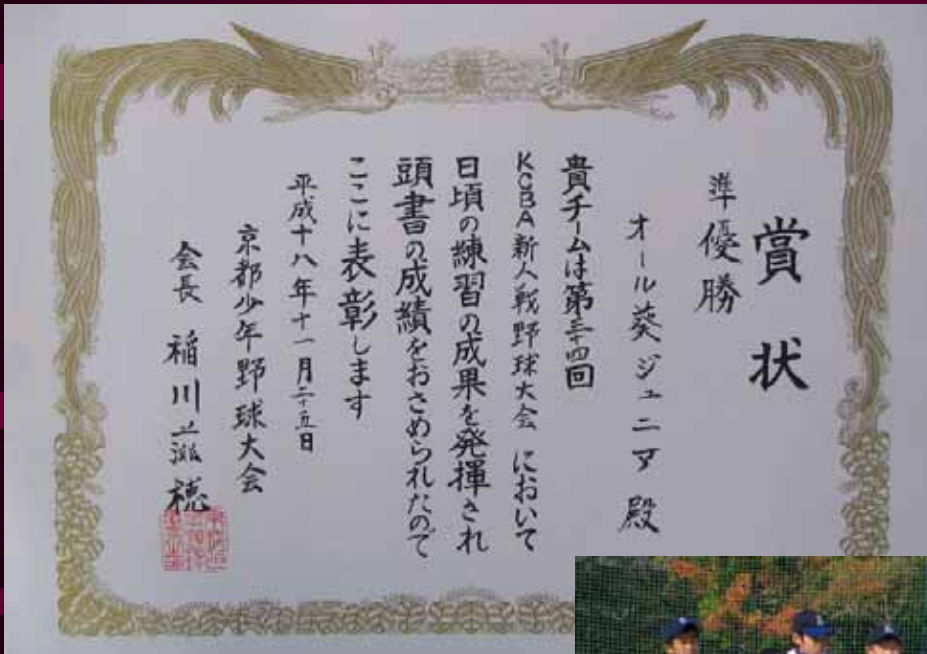 賞状
準優勝
オール葵ジュニア殿
貴チームは第三十四回
KCBA新人戦野球大会 において
日頃の練習の成果を発揮され
頭書の成績をおさめられたので
ここに表彰します
平成十八年十一月二十五日
京都少年野球大会
会長 稲川 穂